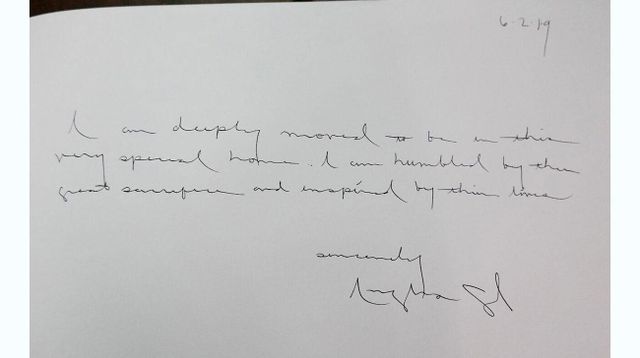 6.2.19
I am deeply moved to be in this
very special home. I am humbled by the
great sacrifice and inspired by their lives
sincerely